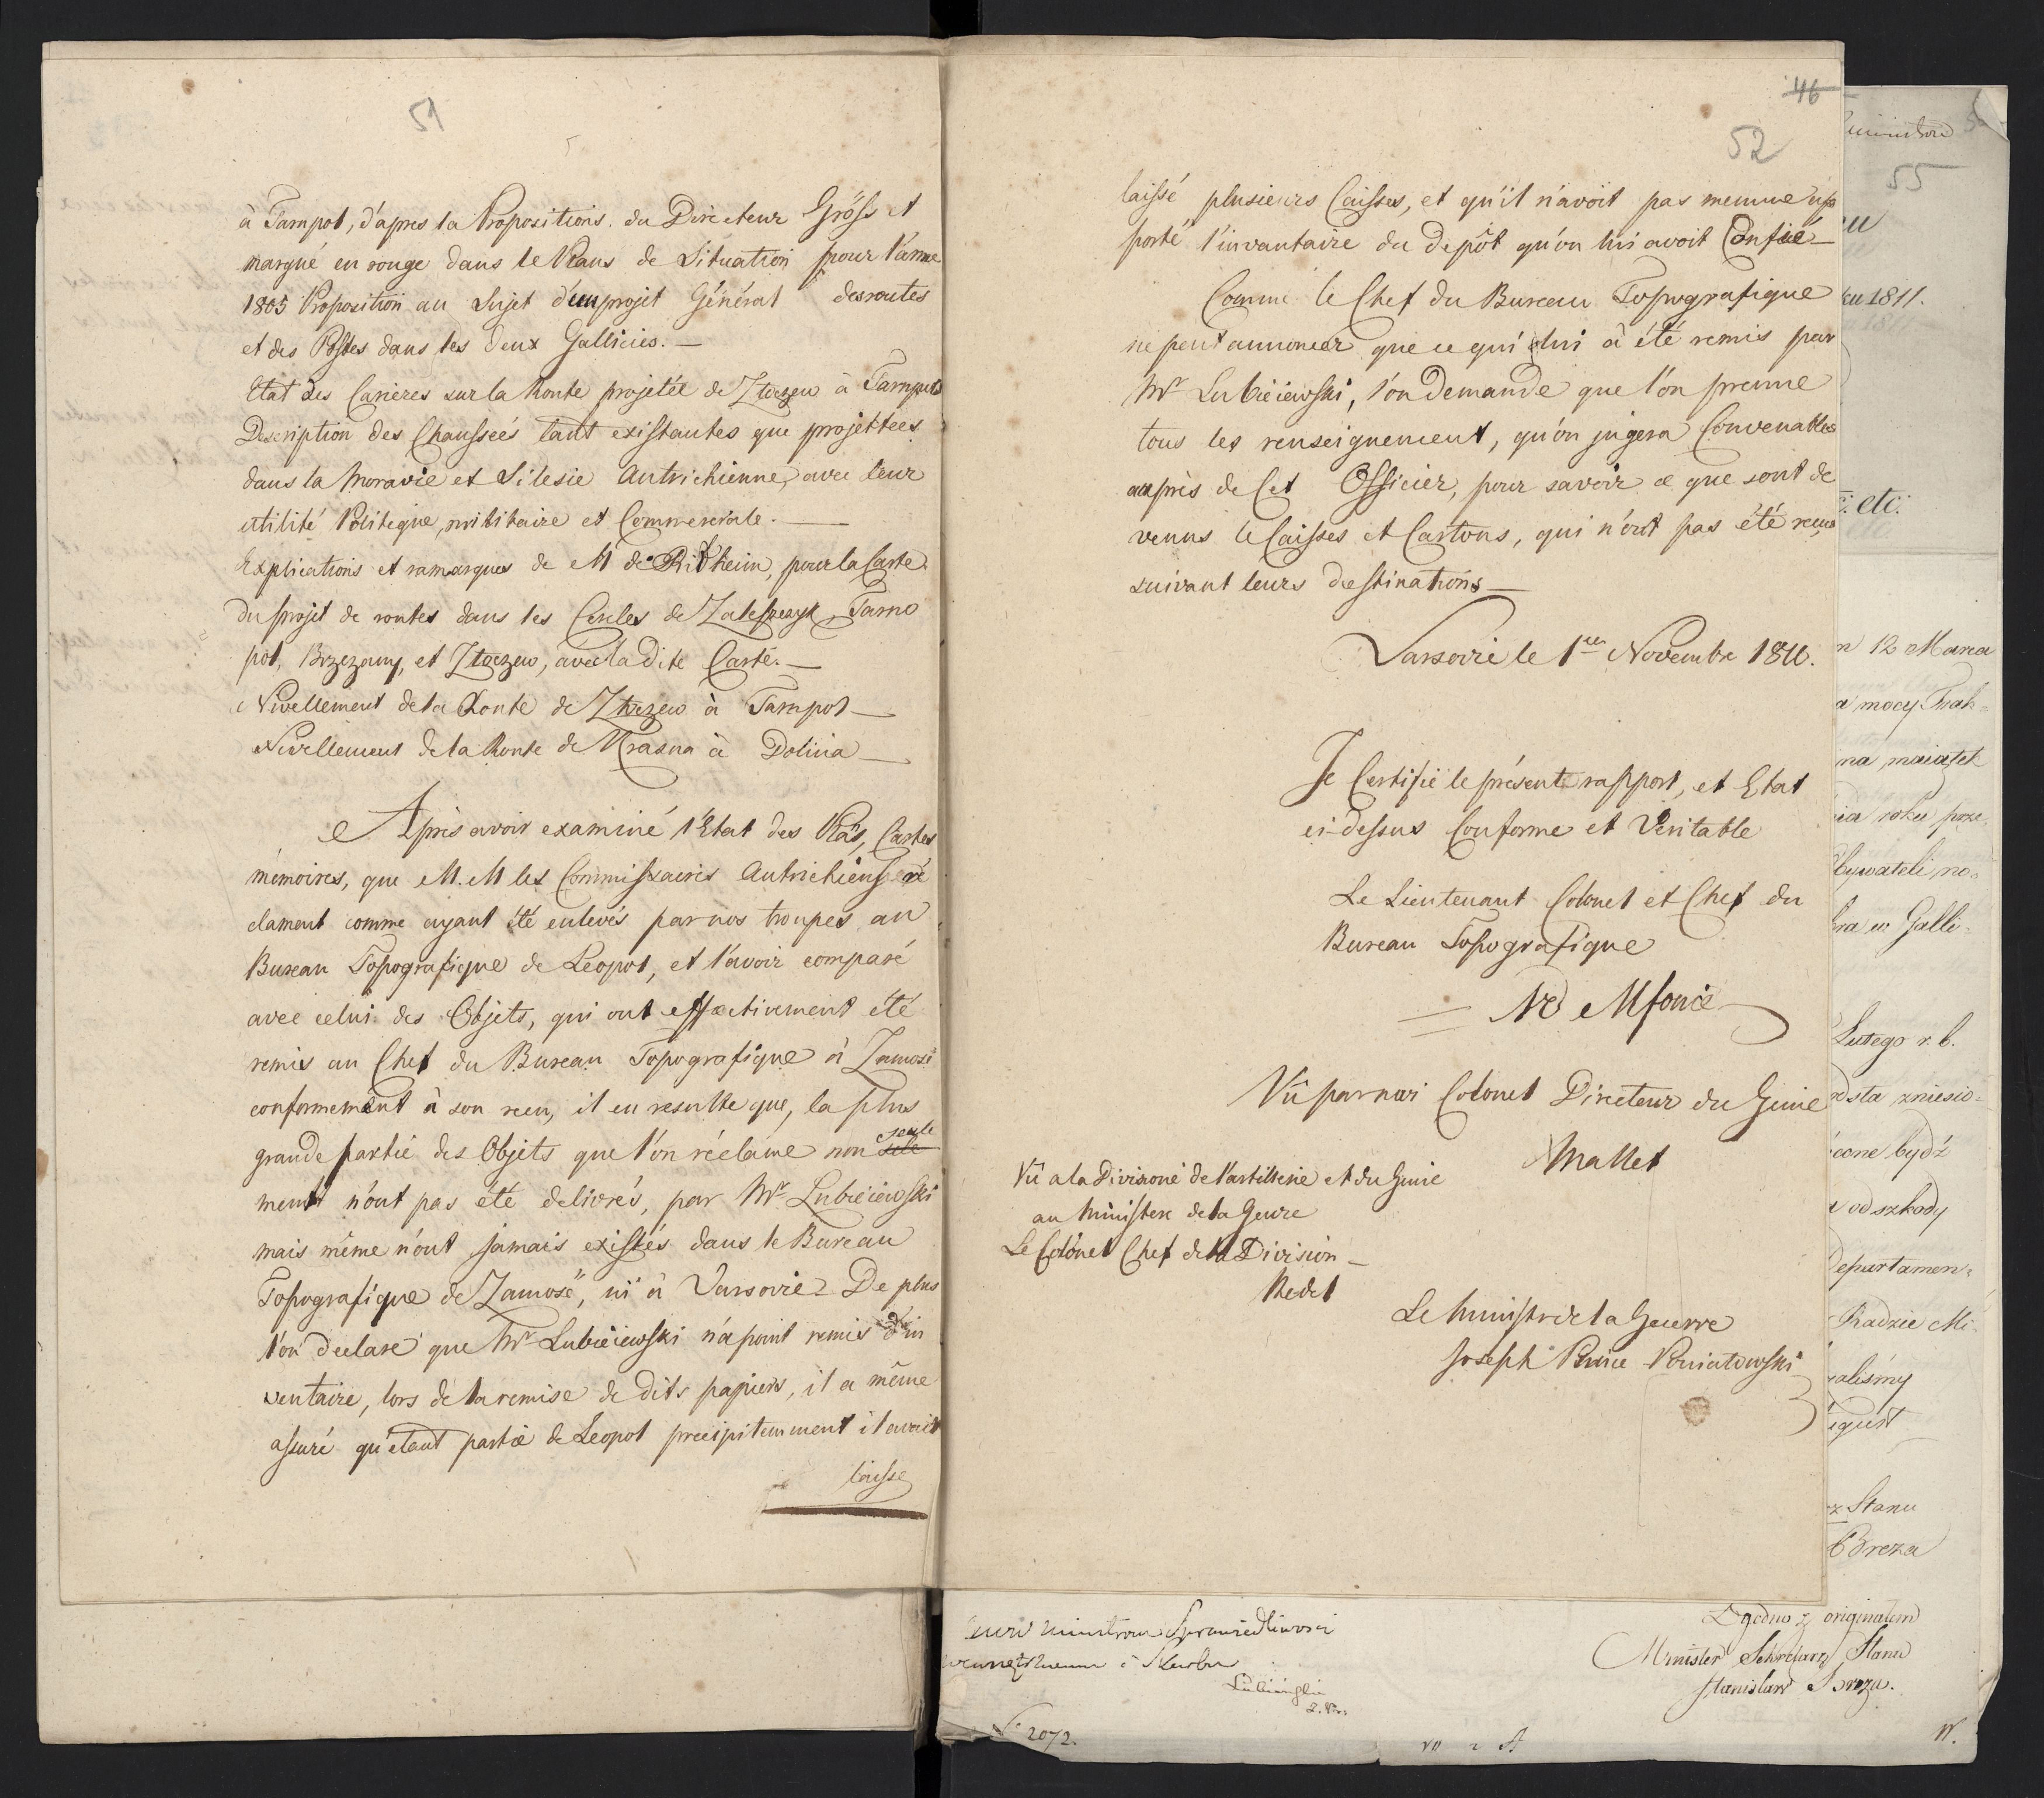 51
à Tarnpol, d'apres la Propositions. du Directeur Gröss et
marqué en rouge dans le Plans de Situation pour l'anné
1805 Proposition au Sujet d'un projet Général des routes
et des Postes dans les deux Gallicies. —
Etat des Carières sur la Route projetée de Złoczew à Tarnpol
Description des Chausseés tant existantes que projettees
dans la Moravie et Silesie Autrichienne, avec leur
utilité Politique, militaire et Commerciale. —
Explications et ramarques de M de Ritheim, pour la Carte
du projet de routes dans les Cercles de Zaleszczyk Tarno
pol, Brzezany, et Złoczew, avec la dite Carte. —
Nivellement de la Route de Złoczew à Tarnpol —
Nivellement de la Route de Krasna à Dolina —
Après avoir examiné l'Etat des Plãs, Cartes
mémoires, que M. M les Commissaires Autrichiens ré
clament comme ayant été enlevés par nos troupes au
Bureau Topografique de Leopol, et l'avoir comparé
avec celui des Objets, qui ont effectivement été
remis au Chef du Bureau Topografique à Zamosc
conformement à son recu, il en resulte que, la plus
grande partié des Objets que l'on réclame non seule
ment n'ont pas été delivrés, par Mr Lubieiewski
mais même n'ont jamais existés dans le Bureau
Topografique de Zamosc, ni à Varsovie. De plus
l'on declare que Mr Lubieiewski n'a point remis d'in
ventaire, lors de la remise de dits papiers, il a même
assuré qu'etant partie de Leopol precipitemment il avoit
laissé
46
52
laissé plusieurs Caisses, et qu'il n'avoit pas memme
porté l'invantaire du depôt qu'on lui avoit Confié —
Comme le Chef du Bureau Topografique
ne peut annoncer que ce qui lui à été remis par
Mr Lubieiewski, l'on demande que l'on prenne
tous les renseignement, qu'on jugera Convenables
auprès de Cet Officier, pour savoir ce que sont de
venus le Caisses et Cartons, qui n'ont pas été reçus
suivant leurs destinations —
Varsovie le 1er Novembre 1810.
Je Certifie le présent rapport, et Etat
ci-dessus Conforme et Veritable
Le Lieutenant Colonel et Chef du
Bureau Topografique
Vû par moi Colonel Directeur du Genie
Mallet
Vû a la Divisione de l'artillerie et du Genie
au Ministere de la Geure
Le Colonel Chef de la Division —
Redel
Le Ministre de la Guerre
Joseph Prince Poniatowski
55
1811.
etc:
12 Marca
mocy Trak=
na maiątek
roku
Obywateli
w Galli=
Lutego r. b.
zniesio=
bydź
od szkody
Departamen=
Radzie Mi=
Stanu
Breza
Ministrowi Sprawiedliwosci
i Skarbu
2072.
Zgodno z originałem
Minister Sekretarz Stanu
Stanisław Breza.